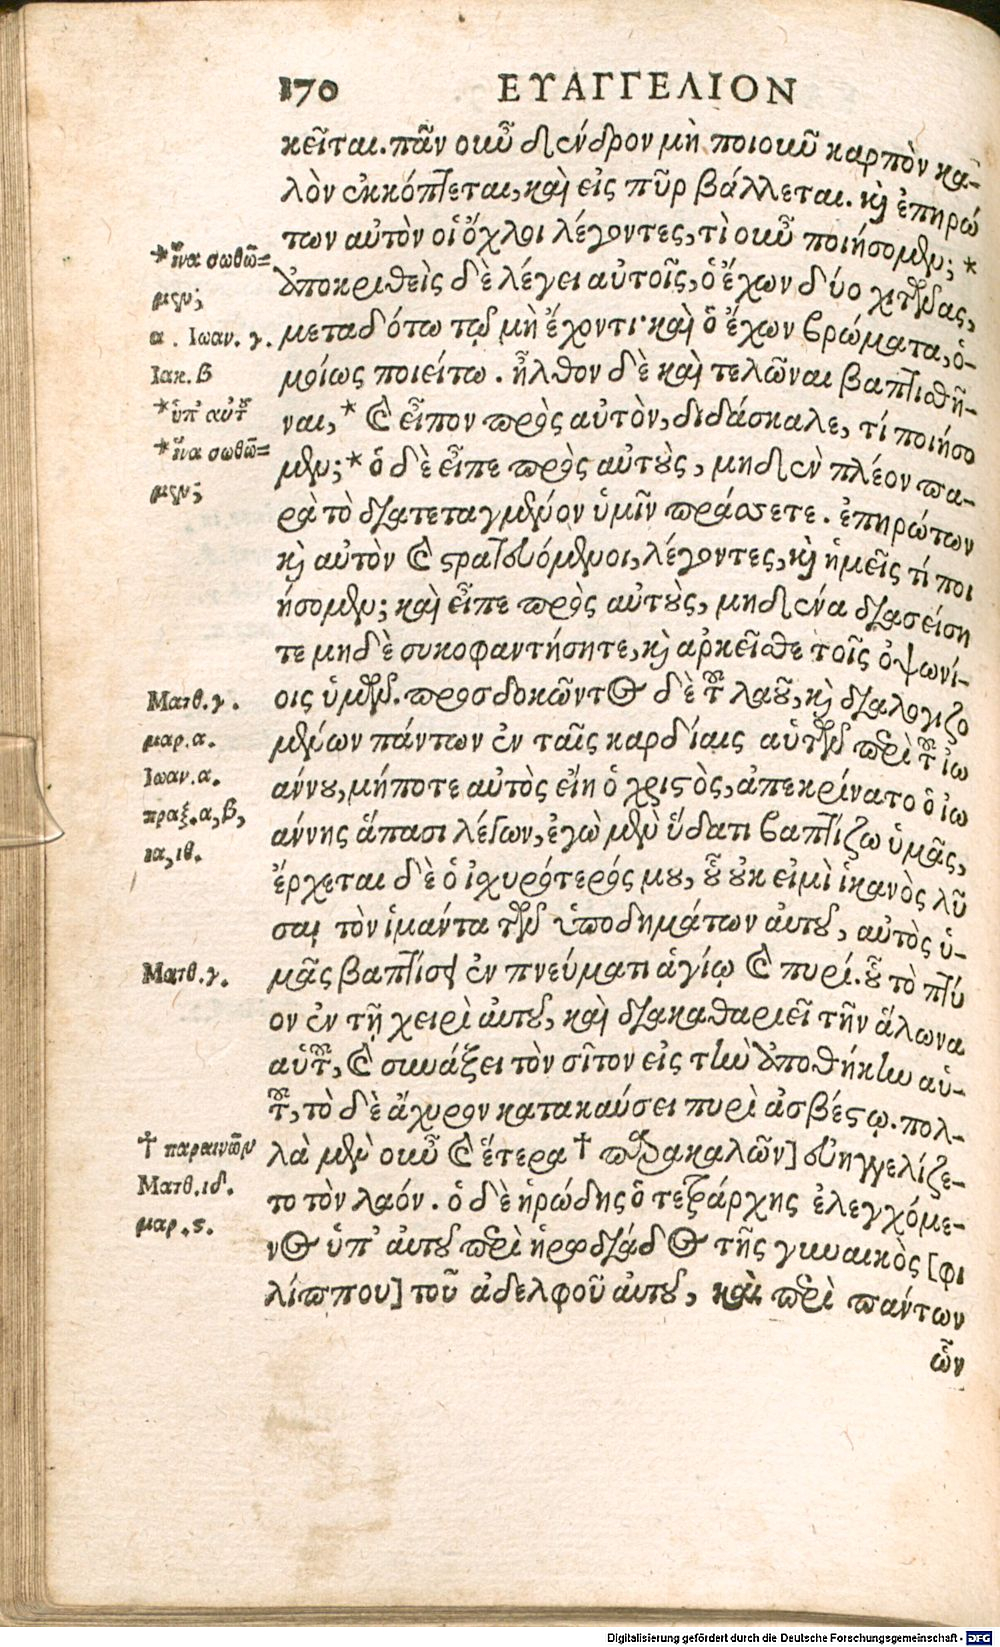 170 ΕΥΑΓΓΕΛΙΟΝ
κεῖται. πᾶν οὖν δένδρον μὴ ποιοῦν καρπὸν κα-
λὸν ἐκκόπτεται, καὶ εἰς πῦρ βάλλεται. καὶ ἐπηρώ
των αὐτὸν οἱ ὄχλοι λέγοντες, τὶ οὖν ποιήσομεν; *
*ἵνα σωθῶ=
μεν;
ἀποκριθεὶς δὲ λέγει αὐτοῖς, ὁ ἔχων δύο χιτῶνας,
α. Ιωαν. γ.
μεταδότω τῷ μὴ ἔχοντι· καὶ ὁ ἔχων βρώματα, ὁ-
Ιακ. β
μοίως ποιείτω. ἦλθον δὲ καὶ τελῶναι βαπτισθῆ-
*ὑπ' αὐτοῦ
ναι, * καὶ εἶπον πρὸς αὐτὸν, διδάσκαλε, τί ποιήσο
*ἵνα σωθῶ=
μεν;
μεν; * ὁ δὲ εἶπε πρὸς αὐτοὺς, μηδὲν πλέον πα-
ρὰ τὸ διατεταγμένον ὑμῖν πράσσετε. ἐπηρώτων
καὶ αὐτὸν καὶ στρατευόμενοι, λέγοντες, καὶ ἡμεῖς τί ποι
ήσομεν; καὶ εἶπε πρὸς αὐτοὺς, μηδένα διασείση
τε μηδὲ συκοφαντήσητε, καὶ ἀρκεῖσθε τοῖς ὀψωνί-
Ματθ. γ.
οις ὑμῶν. προσδοκῶντος δὲ τοῦ λαοῦ, καὶ διαλογιζο
μαρ. α.
μένων πάντων ἐν ταῖς καρδίαις αὑτῶν περὶ τοῦ ἰω
Ιωαν. α.
άννου, μήποτε αὐτὸς εἴη ὁ χριστὸς, ἀπεκρίνατο ὁ ἰω
πραξ. α, β,
ια, ιθ.
άννης ἅπασι λέγων, ἐγὼ μὲν ὕδατι βαπτίζω ὑμᾶς,
ἔρχεται δὲ ὁ ἰσχυρότερός μου, οὗ οὐκ εἰμὶ ἱκανὸς λῦ
σαι τὸν ἱμάντα τῶν ὑποδημάτων αὐτοῦ, αὐτὸς ὑ-
Ματθ. γ.
μᾶς βαπτίσει ἐν πνεύματι ἁγίῳ καὶ πυρί. οὗ τὸ πτύ
ον ἐν τῇ χειρὶ αὐτοῦ, καὶ διακαθαριεῖ τὴν ἅλωνα
αὑτοῦ, καὶ συνάξει τὸν σῖτον εἰς τὴν ἀποθήκην αὑ-
τοῦ, τὸ δὲ ἄχυρον κατακαύσει πυρὶ ἀσβέστῳ. πολ-
† παραινῶν
λὰ μὲν οὖν καὶ ἕτερα † παρακαλῶν] εὐηγγελίζε-
Ματθ. ιδ.
το τὸν λαόν. ὁ δὲ ἡρώδης ὁ τετράρχης ἐλεγχόμε-
μαρ. ς.
νος ὑπ' αὐτοῦ περὶ ἡρωδιάδος τῆς γυναικὸς [φι
λίππου] τοῦ ἀδελφοῦ αὐτοῦ, καὶ περὶ πάντων
ὧν
Digitalisierung gefördert durch die Deutsche Forschungsgemeinschaft - DFG